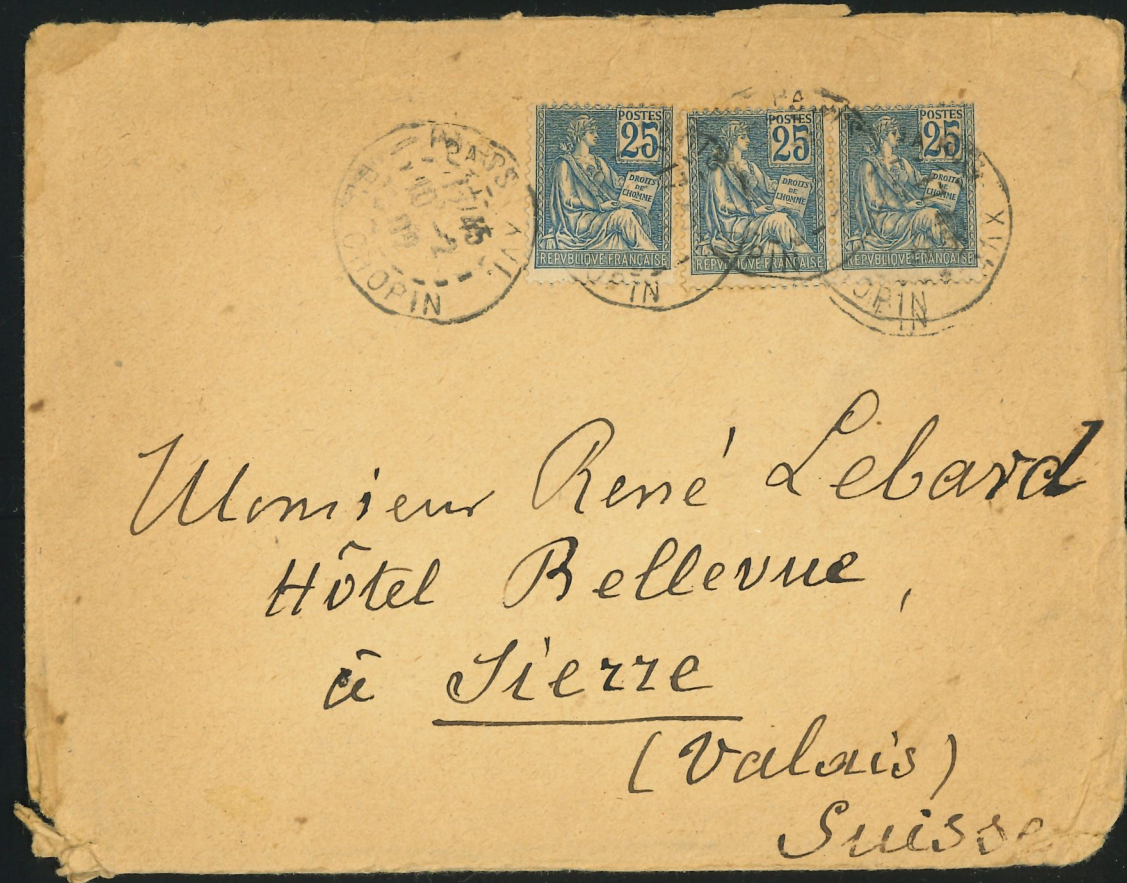 POSTES
25
DROITS
DE
L'HOMME
REPVBLIQVE FRANÇAISE
POSTES
25
DROITS
DE
L'HOMME
REPVBLIQVE FRANÇAISE
POSTES
25
DROITS
DE
L'HOMME
REPVBLIQVE FRANÇAISE
PARIS XVI
CHOPIN
Monsieur René Lebard
Hôtel Bellevue,
à Sierre
(Valais)
Suisse